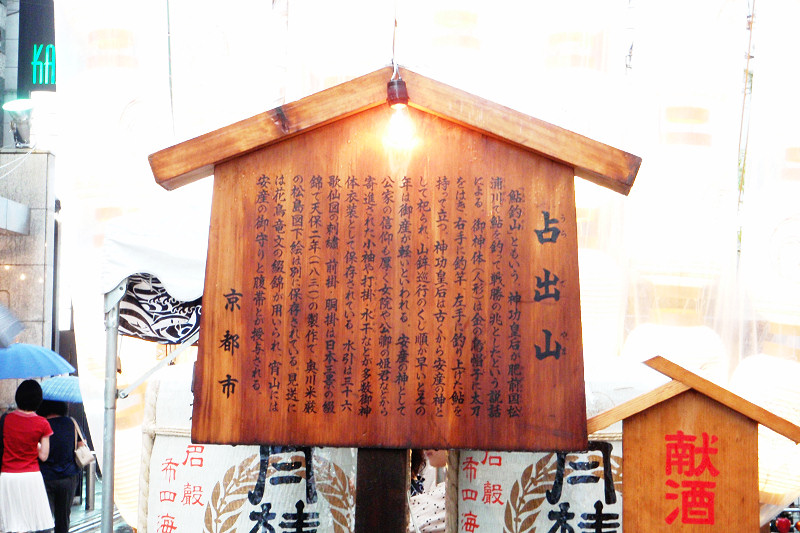 占出山
うらでやま
「鮎釣山」ともいう。神功皇后が肥前国松
浦川で鮎を釣って戦勝の兆としたという説話
による。御神体(人形)は金の烏帽子に太刀
をはき、右手に釣竿、左手に釣り上げた鮎を
持って立つ。神功皇后は古くから安産の神と
して祀られ、山鉾巡行のくじ順が早いとその
年は御産が軽いといわれる。安産の神として
公家の信仰も厚く、女院や公卿の姫君などから
寄進された小袖や打掛、水干などが多数御神
体衣装として保存されている。水引は三十六
歌仙図の刺繍、前掛、胴掛は日本三景の綴
錦で天保二年(一八三一)の製作で、奥川米厳
の松島図下絵は別に保存されている。見送に
は花鳥竜文の綴錦が用いられ、宵山には
安産の御守りと腹帯とが授与される。
京都市
献酒
KA
月桂
月桂
布四海
布四海